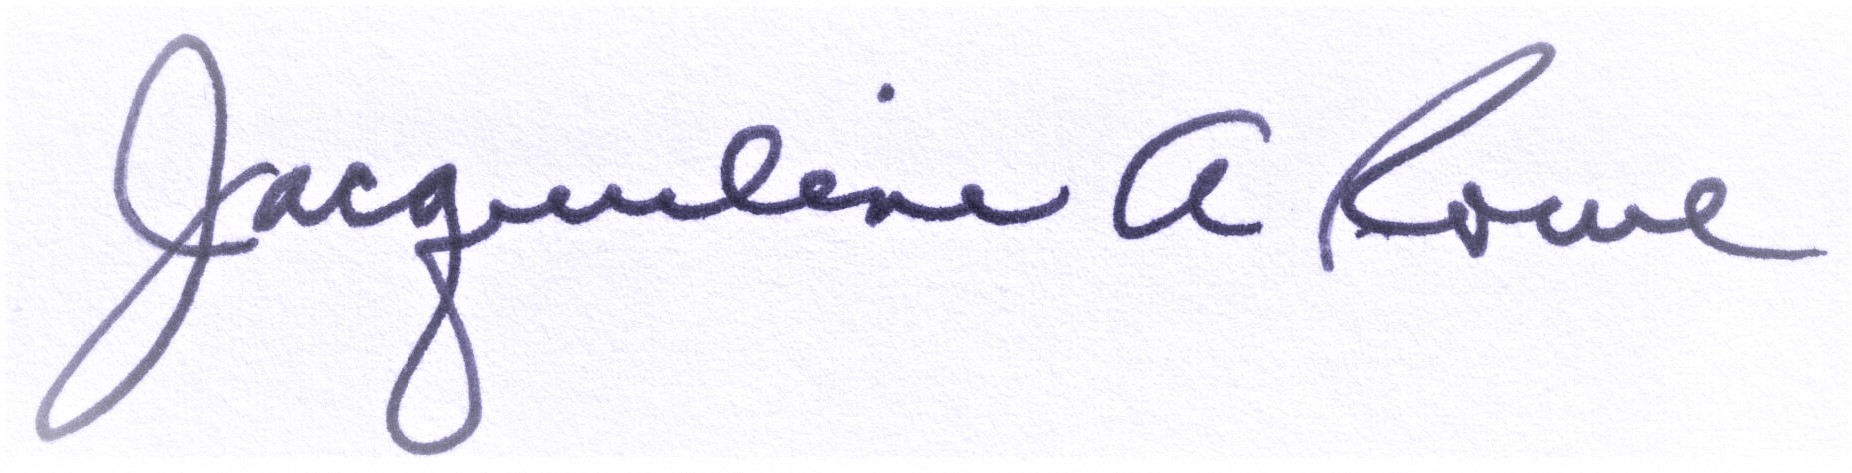 Jacqueline A Rowe